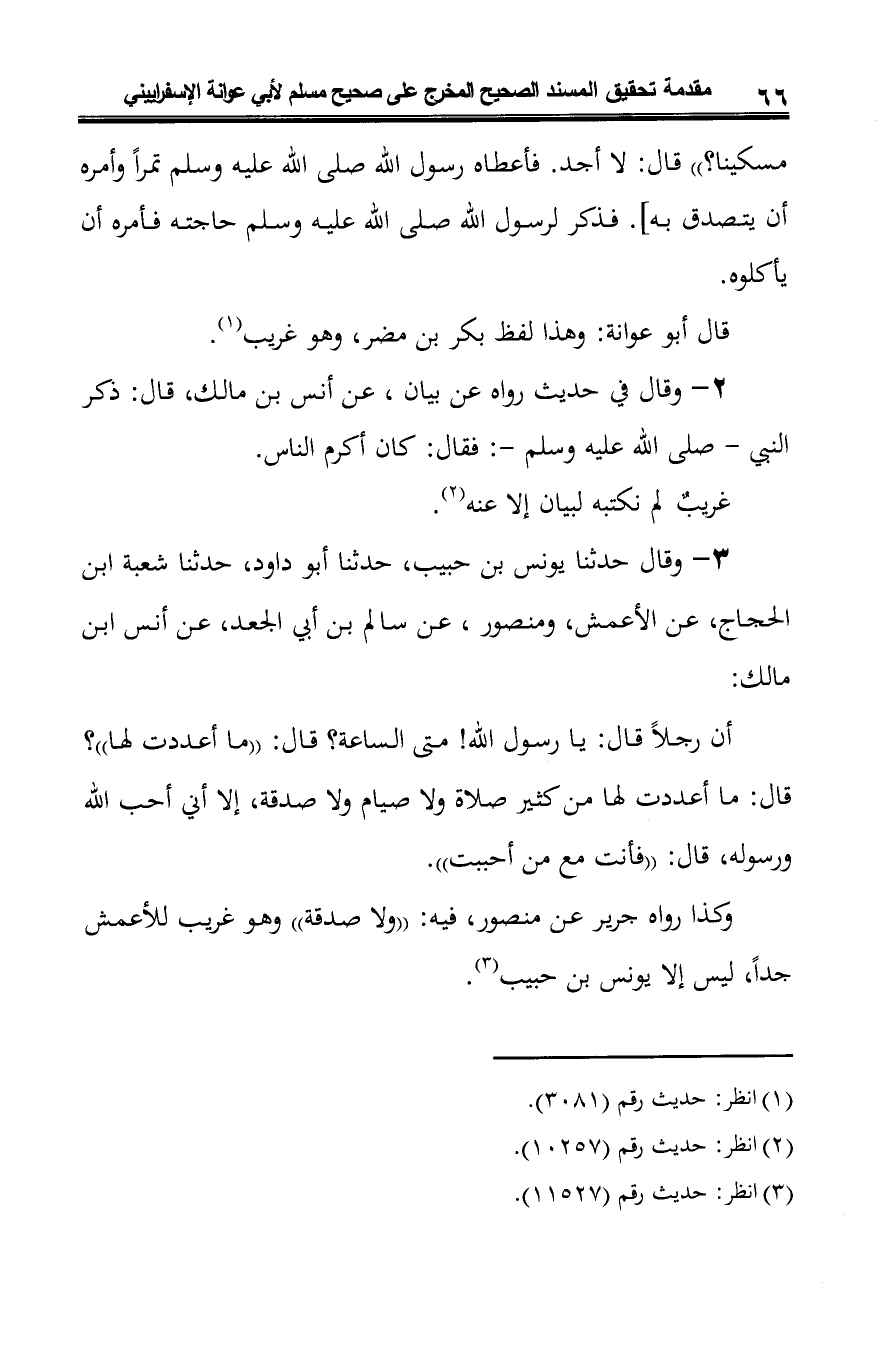 ٦٦ مقدمة تحقيق المسند الصحيح المخرج على صحيح مسلم لأبي عوانة الإسفراييني
مسكينا؟)) قال: لا أجد. فأعطاه رسول الله صلى الله عليه وسلم تمراً وأمره
أن يتصدق به]. فذكر لرسول الله صلى الله عليه وسلم حاجته فأمره أن
يأكلوه.
قال أبو عوانة: وهذا لفظ بكر بن مضر، وهو غريب(١).
٢- وقال في حديث رواه عن بيان ، عن أنس بن مالك، قال: ذكر
النبي - صلى الله عليه وسلم -: فقال: كان أكرم الناس.
غريبٌ لم نكتبه لبيان إلا عنه(٢).
٣- وقال حدثنا يونس بن حبيب، حدثنا أبو داود، حدثنا شعبة ابن
الحجاج، عن الأعمش، ومنصور ، عن سالم بن أبي الجعد، عن أنس ابن
مالك:
أن رجلاً قال: يا رسول الله! متى الساعة؟ قال: ((ما أعددت لها))؟
قال: ما أعددت لها من كثير صلاة ولا صيام ولا صدقة، إلا أني أحب الله
ورسوله، قال: ((فأنت مع من أحببت)).
وكذا رواه جرير عن منصور، فيه: ((ولا صدقة)) وهو غريب للأعمش
جداً، ليس إلا يونس بن حبيب(٣).
(١) انظر: حديث رقم (٣٠٨١).
(٢) انظر: حديث رقم (١٠٢٥٧).
(٣) انظر: حديث رقم (١١٥٢٧).